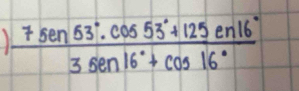 ) 7 sen 53°. cos 53° + 12 sen 16°
3 sen 16° + cos 16°